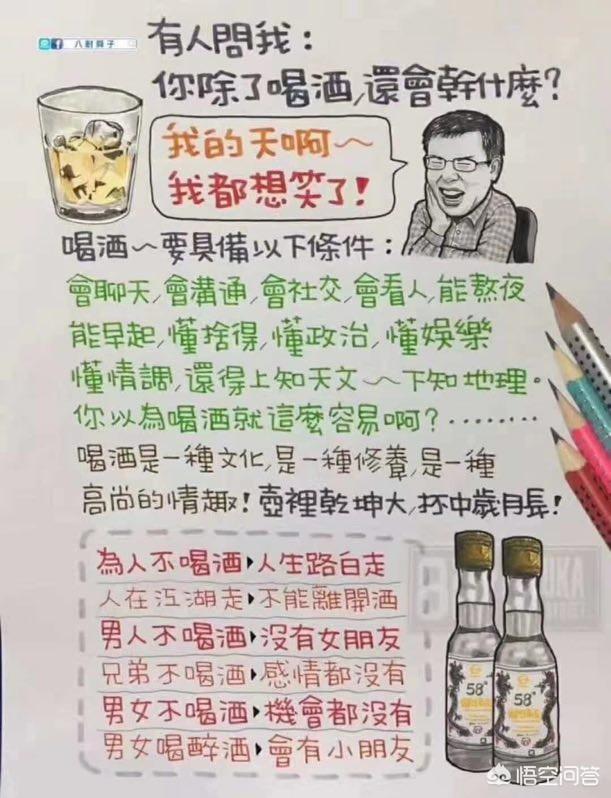 八耐舜子
有人問我:
你除了喝酒,還會幹什麼?
我的天啊~
我都想笑了!
喝酒~要具備以下條件:
會聊天,會溝通,會社交,會看人,能熬夜
能早起,懂捨得,懂政治,懂娛樂
懂情調,還得上知天文~下知地理。
你以為喝酒就這麼容易啊?………
喝酒是一種文化,是一種修養,是一種
高尚的情趣!壺裡乾坤大,杯中歲月長!
為人不喝酒▸人生路白走
人在江湖走▸不能離開酒
男人不喝酒▸沒有女朋友
兄弟不喝酒▸感情都沒有
男女不喝酒▸機會都沒有
男女喝醉酒▸會有小朋友
58°
58°
悟空问答